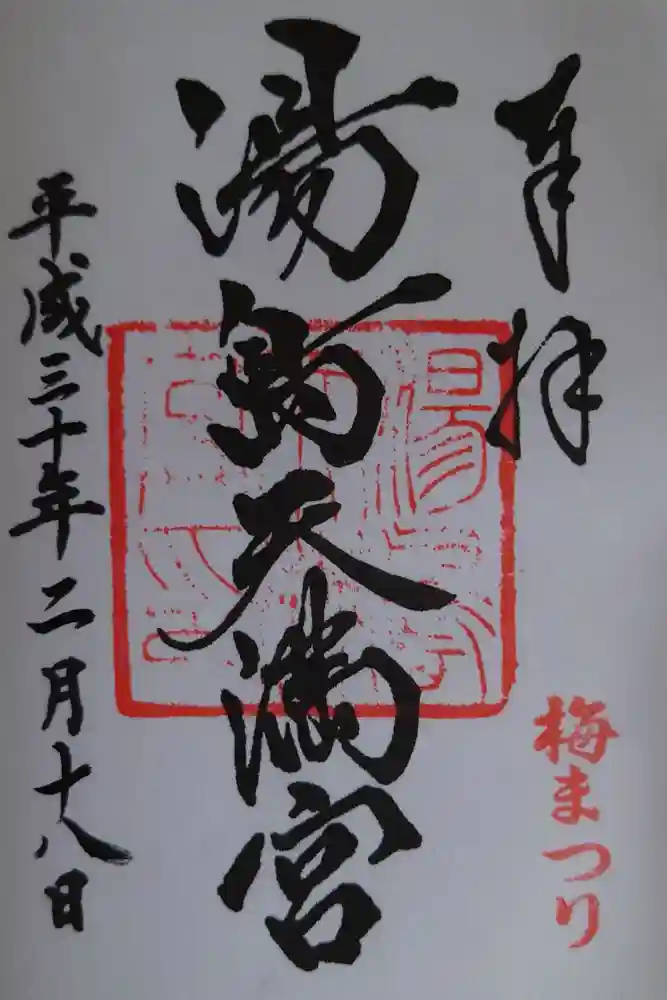 奉拝
梅まつり
湯島天満宮
平成三十年二月十八日